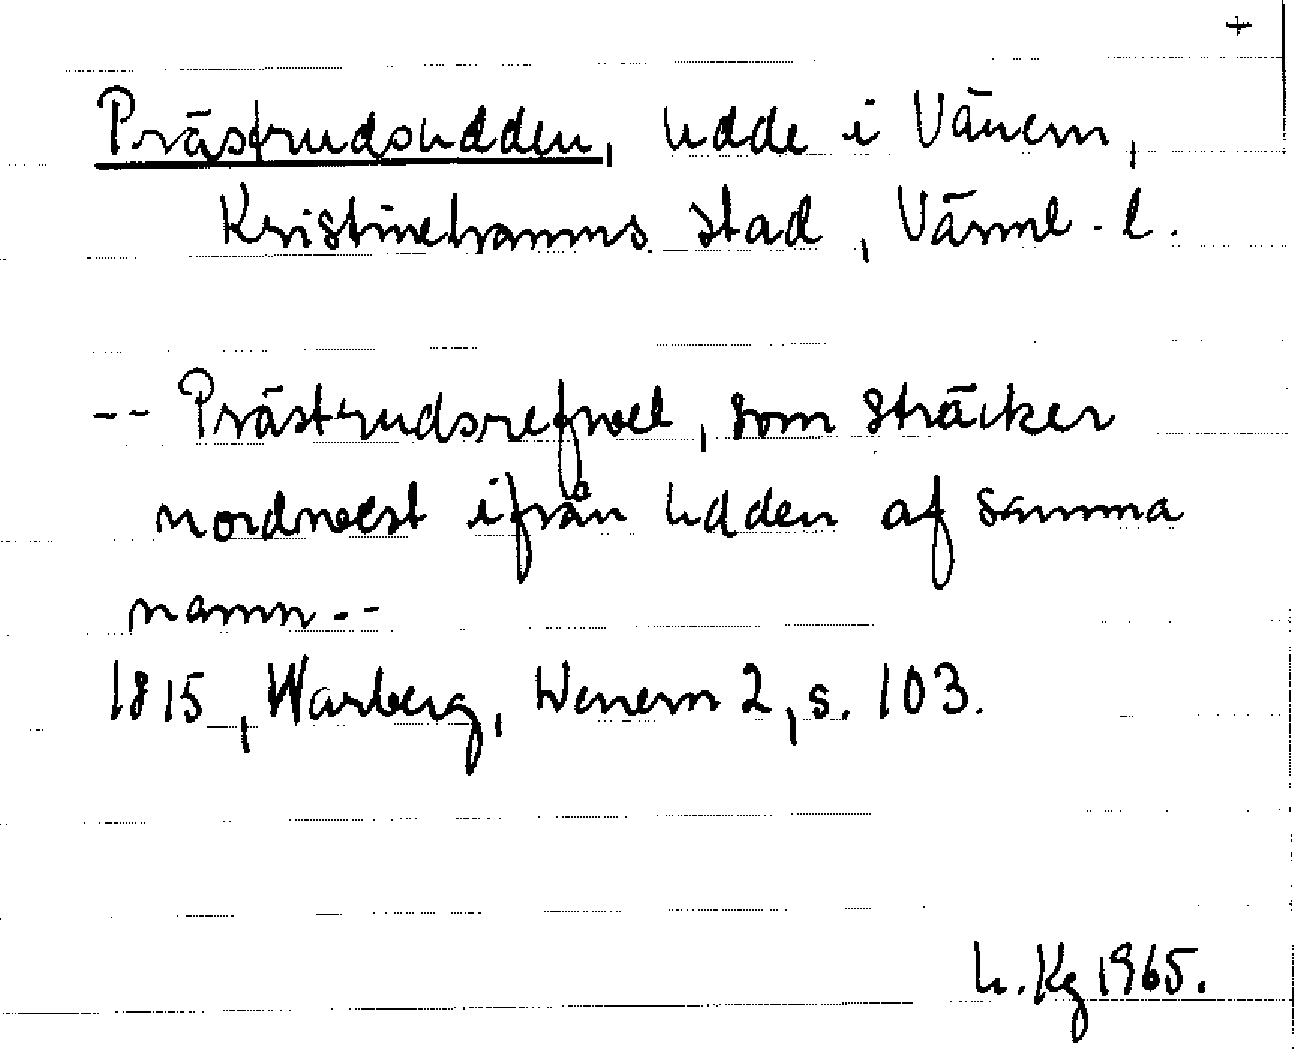 +
Prästrudsudden, udde i Vänern,
Kristinehamns stad, Värml. l.
-- Prästrudsrefwel, som sträcker
nordwest ifrån udden af samma
namn --
1815, Warberg, Wenern 2, s. 103.
L. Kg 1965.